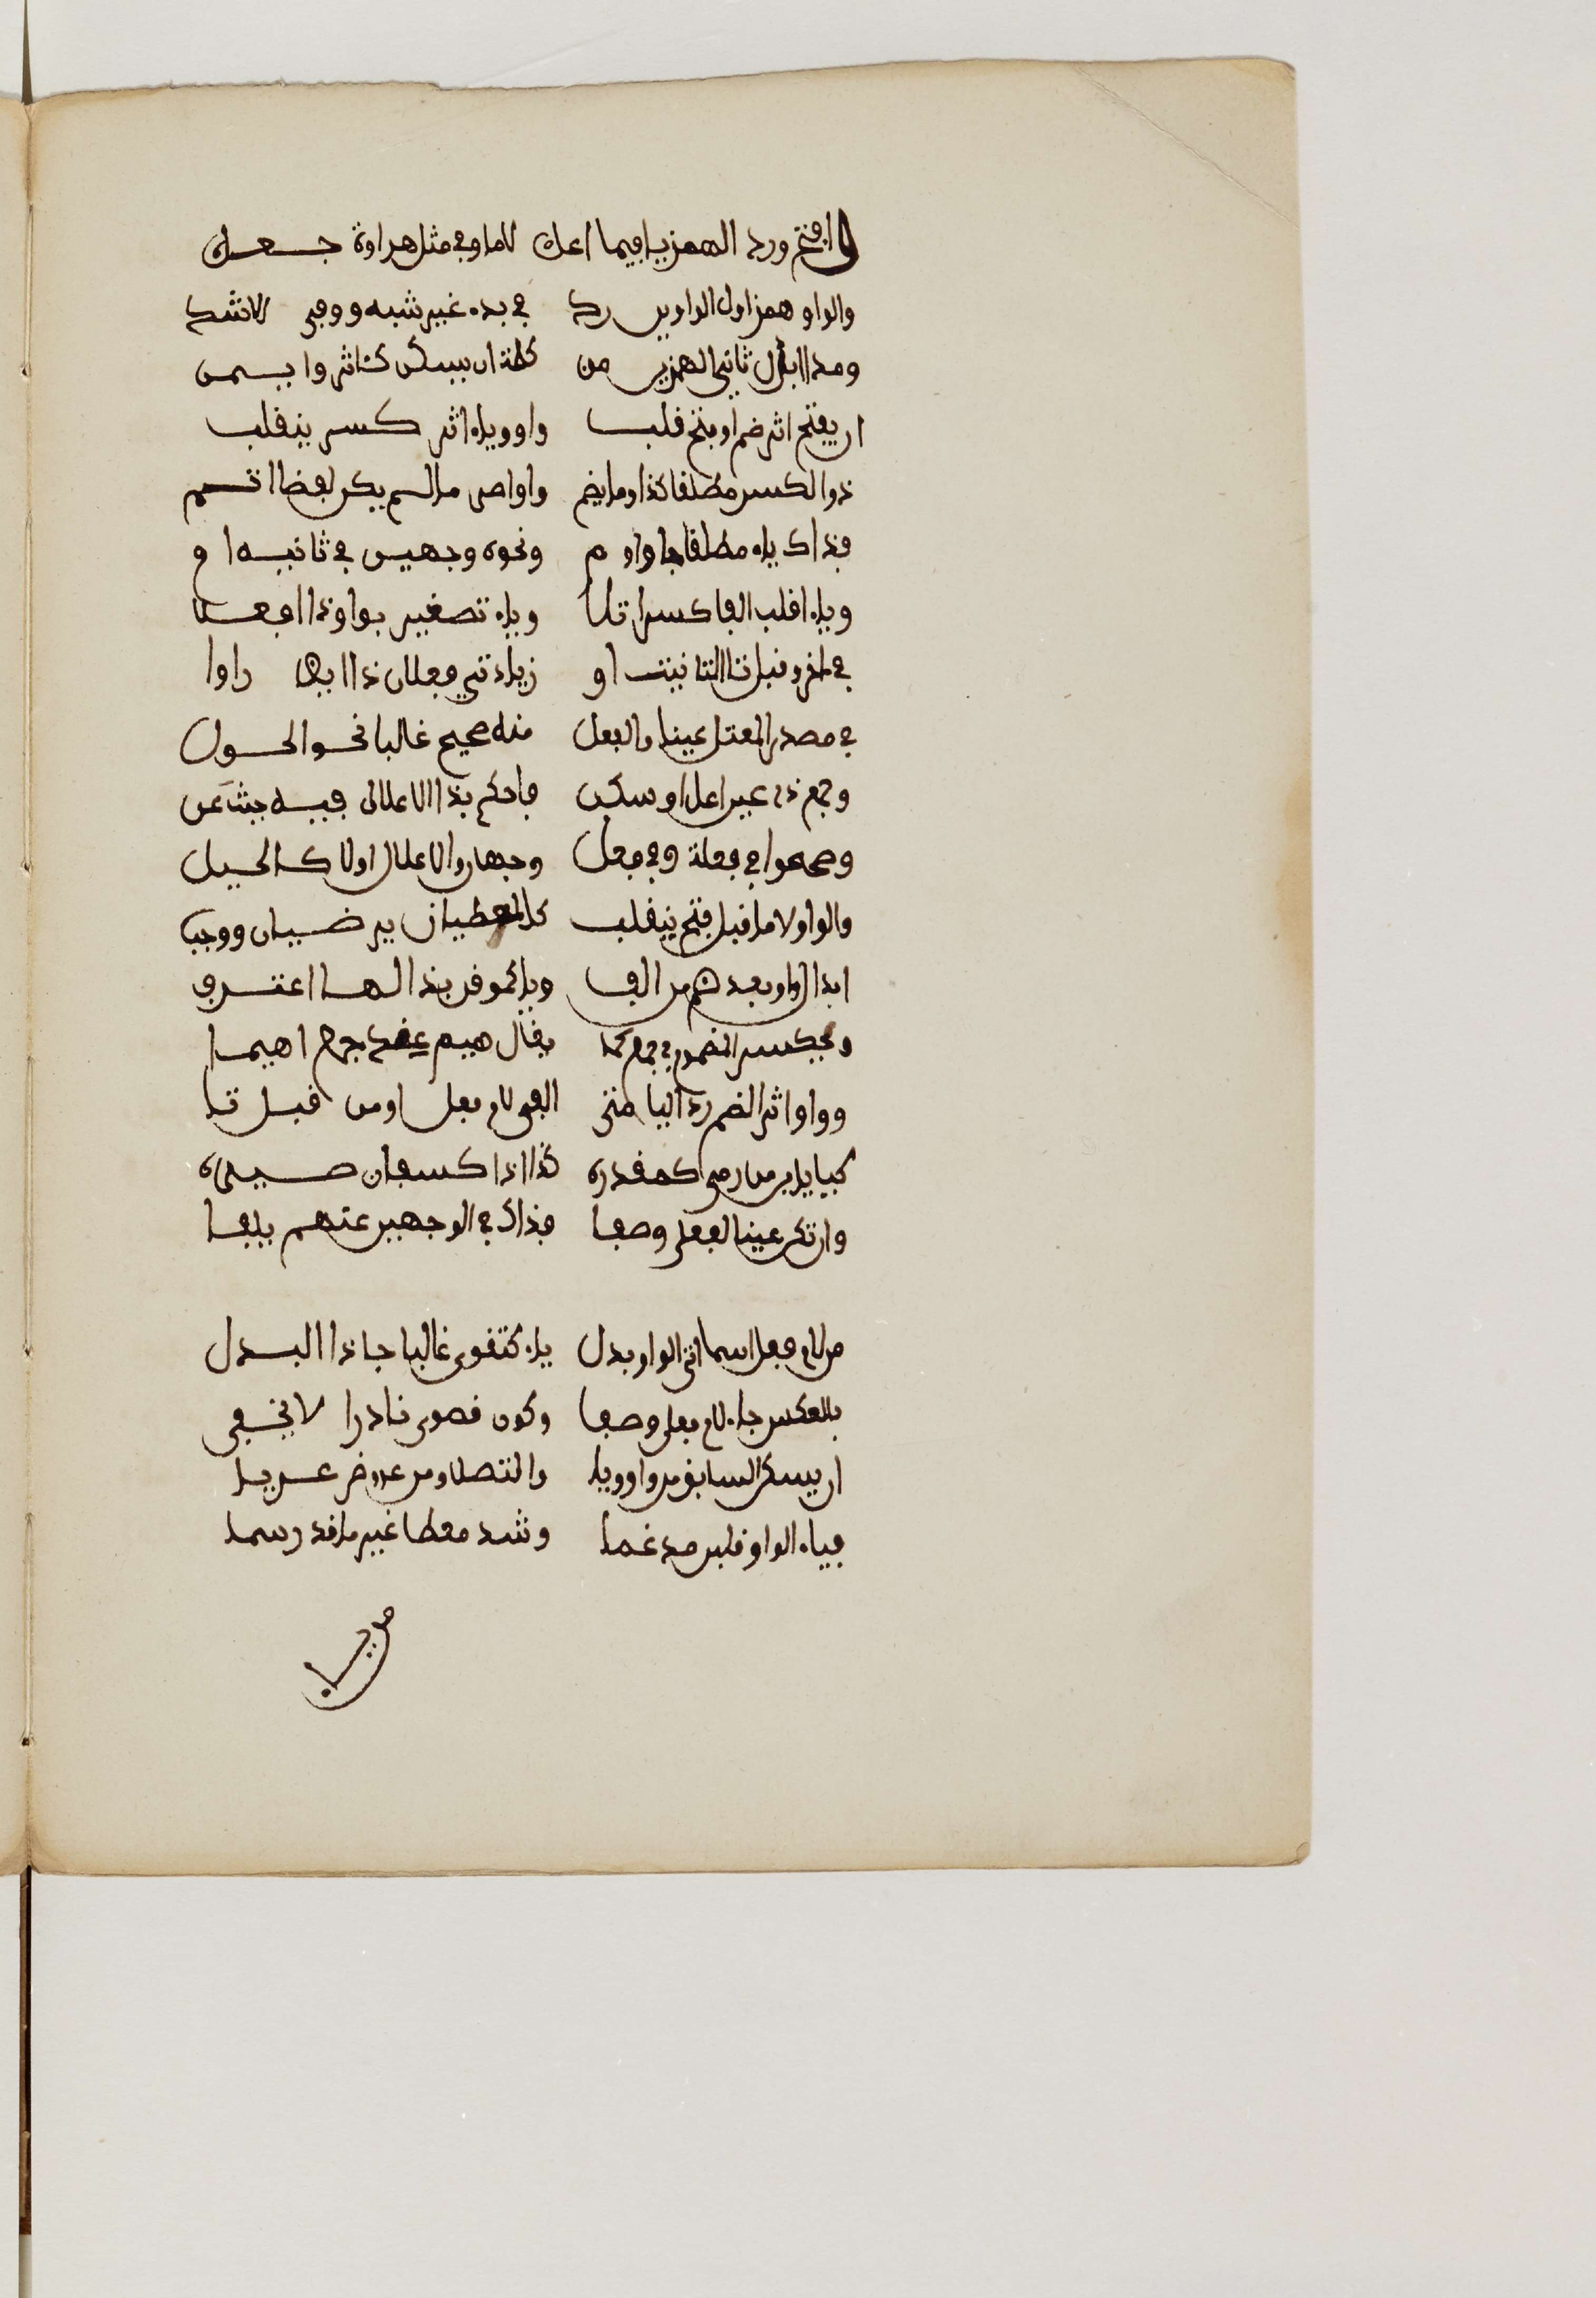 وافتح ورد الهمز يا فيما اعل لاما وفي مثل هراوة جعل
والواو همزا اول الواوين رد في بدء غير شبه ووفي الاشد
ومدا ابدل ثاني الهمزين من كلمة ان يسكن كـاثر وايتمن
ان يفتح اثر ضم او فتح قلب واوا وياء اثر كسر ينقلب
ذو الكسر مطلقا كذا وما يضم واوا اصر ما لم يكن لفظا اتم
فذاك ياء مطلقا جا واوم ونحوه وجهين في ثانيه ام
وياء اقلب الفا كسرا تلا او ياء تصغير بواو ذا افعلا
في اخر او قبل تا التانيث او زيادتي فعلان ذا ايضا راوا
في مصدر المعتل عينا والفعل منه صحيح غالبا نحو الحول
وجمع ذي عين اعل او سكن فاحكم بذا الاعلال فيه حيث عن
وصححوا في فعلة وفي فعل وجهان والاعلال اولى كالحيل
والواو لاما قبل فتح ينقلب كالمعطيان يرضيان ووجب
ابدال واو بعد ضم من الف ويا كموقن بذا لها اعترف
ويكسر المضموم في جمع كما يقال هيم عند جمع اهيما
وواوا اثر الضم رد اليا متى الفي لام فعل او من قبل تا
كيا يا من رمى كمقدره كذا اذا كسبعان صيره
وان تكن عينا لفعلى وصفا فذاك في الوجهين عنهم يلفا
من لام فعلى اسما اتى الواو بدل ياء كتقوى غالبا جا ذا البدل
بالعكس جاء لام فعلى وصفا وكون قصوى نادرا لا يخفى
ان يسكن السابق من واو ويا واتصلا ومن عروض عريا
فياء الواو قلبن مدغما وشذ معطا غير ما قد رسما